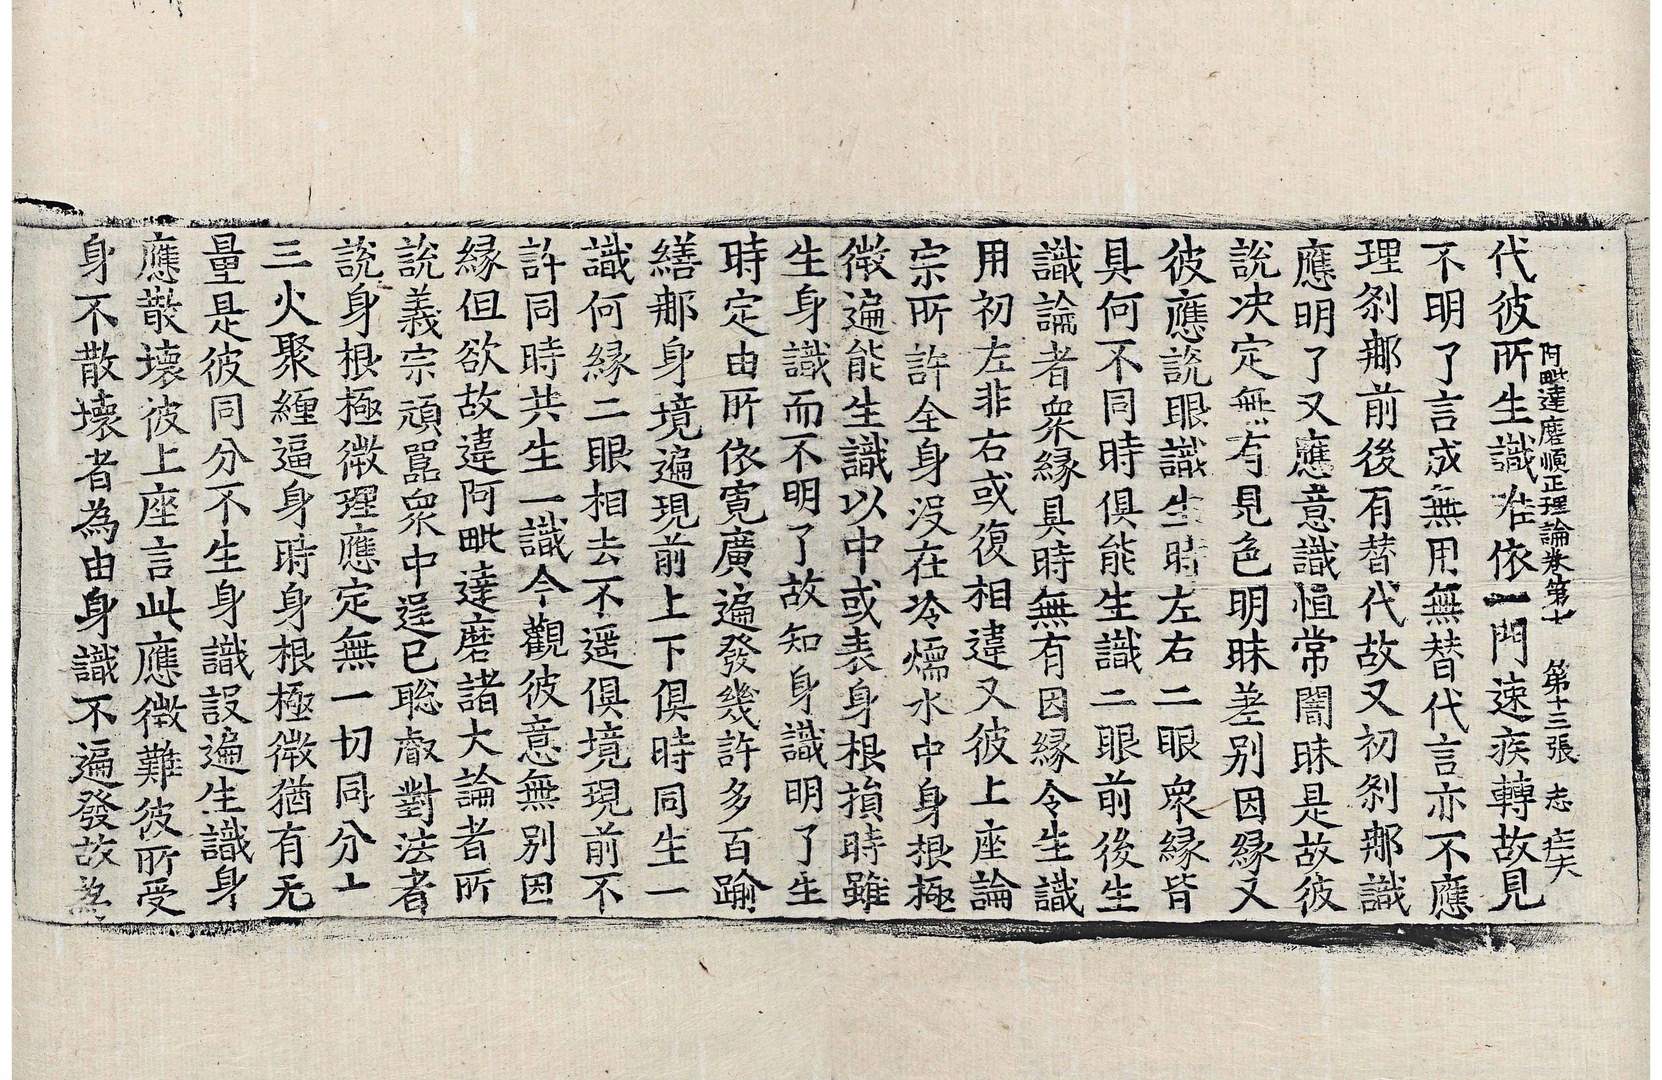 阿毗達磨順正理論卷第七　第十三張　志
代彼所生識唯依一門速疾轉故見
不明了言成無用無替代言亦不應
理刹那前後有替代故又初刹那識
應明了又應意識恒常闇昧是故彼
說决定無有見色明昧差别因縁又
彼應說眼識生時左右二眼衆縁皆
具何不同時俱能生識二眼前後生
識論者衆縁具時無有因縁令生識
用初左非右或復相違又彼上座論
宗所許全身沒在冷煗水中身根極
微遍能生識以中或表身根損時雖
生身識而不明了故知身識明了生
時定由所依寬廣遍發幾許多百踰
繕那身境遍現前上下俱時同生一
識何縁二眼相去不遥俱境現前不
許同時共生一識今觀彼意無别因
縁但欲故違阿毗達磨諸大論者所
說義宗頑嚚衆中逞已聡叡對法者
說身根極微理應定無一切同分十
三火聚纏逼身時身根極微猶有无
量是彼同分不生身識設遍生識身
應散壞彼上座言此應徵難彼所受
身不散壞者為由身識不遍發故為